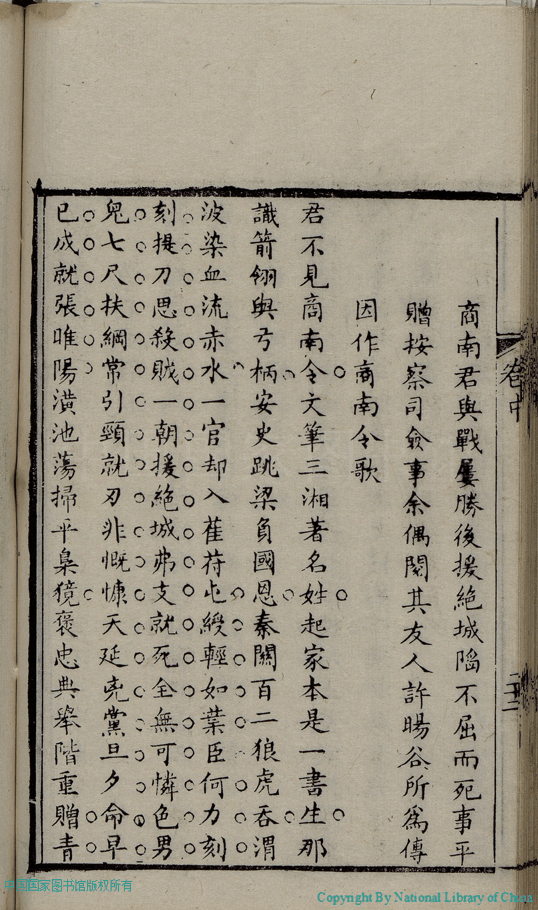 卷中
二十二
商南君與戰屢勝後援絕城陷不屈而死事平
贈按察司僉事余偶閱其友人許暘谷所為傳
因作商南令歌
君不見商南令文筆三湘著名姓起家本是一書生那
識箭翎與弓柄安史跳梁負國恩秦關百二狼虎吞渭
波染血流赤水一官却入萑苻屯綬輕如葉臣何力刻
刻提刀思殺賊一朝援絕城弗支就死全無可憐色男
兒七尺扶綱常引頸就刃非慨慷天延兇黨旦夕命早
已成就張睢陽潢池蕩掃平梟獍褒忠典舉階重贈青
中国国家图书馆版权所有
Copyright By National Library of China